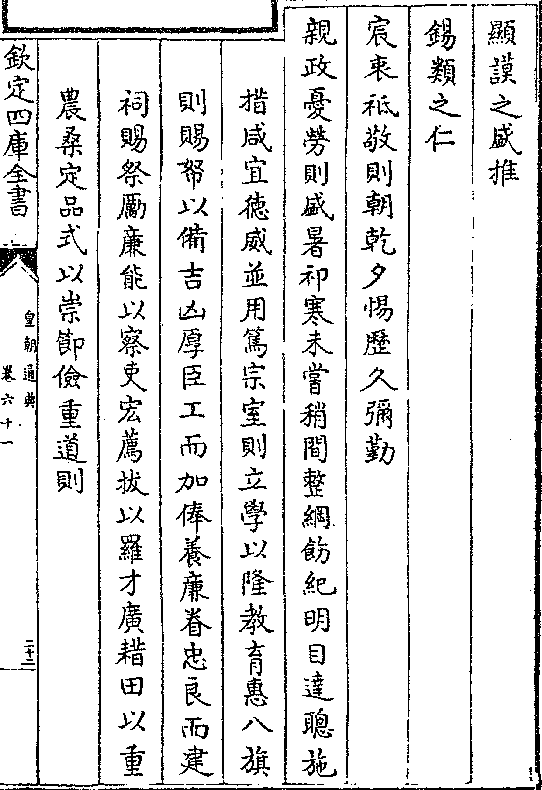 顯謨之盛推
錫類之仁
宸衷祗敬則朝乾夕惕歷久彌勤
親政憂勞則盛暑祁寒未嘗稍間整綱飭紀明目達聰施
措咸宜德威並用篤宗室則立學以隆教育惠八旗
則賜帑以備吉凶厚臣工而加俸養廉眷忠良而建
祠賜祭勵廉能以察吏宏薦拔以羅才廣耤田以重
農桑定品式以崇節儉重道則
欽定四庫全書
皇朝通典
卷六十一
二十二